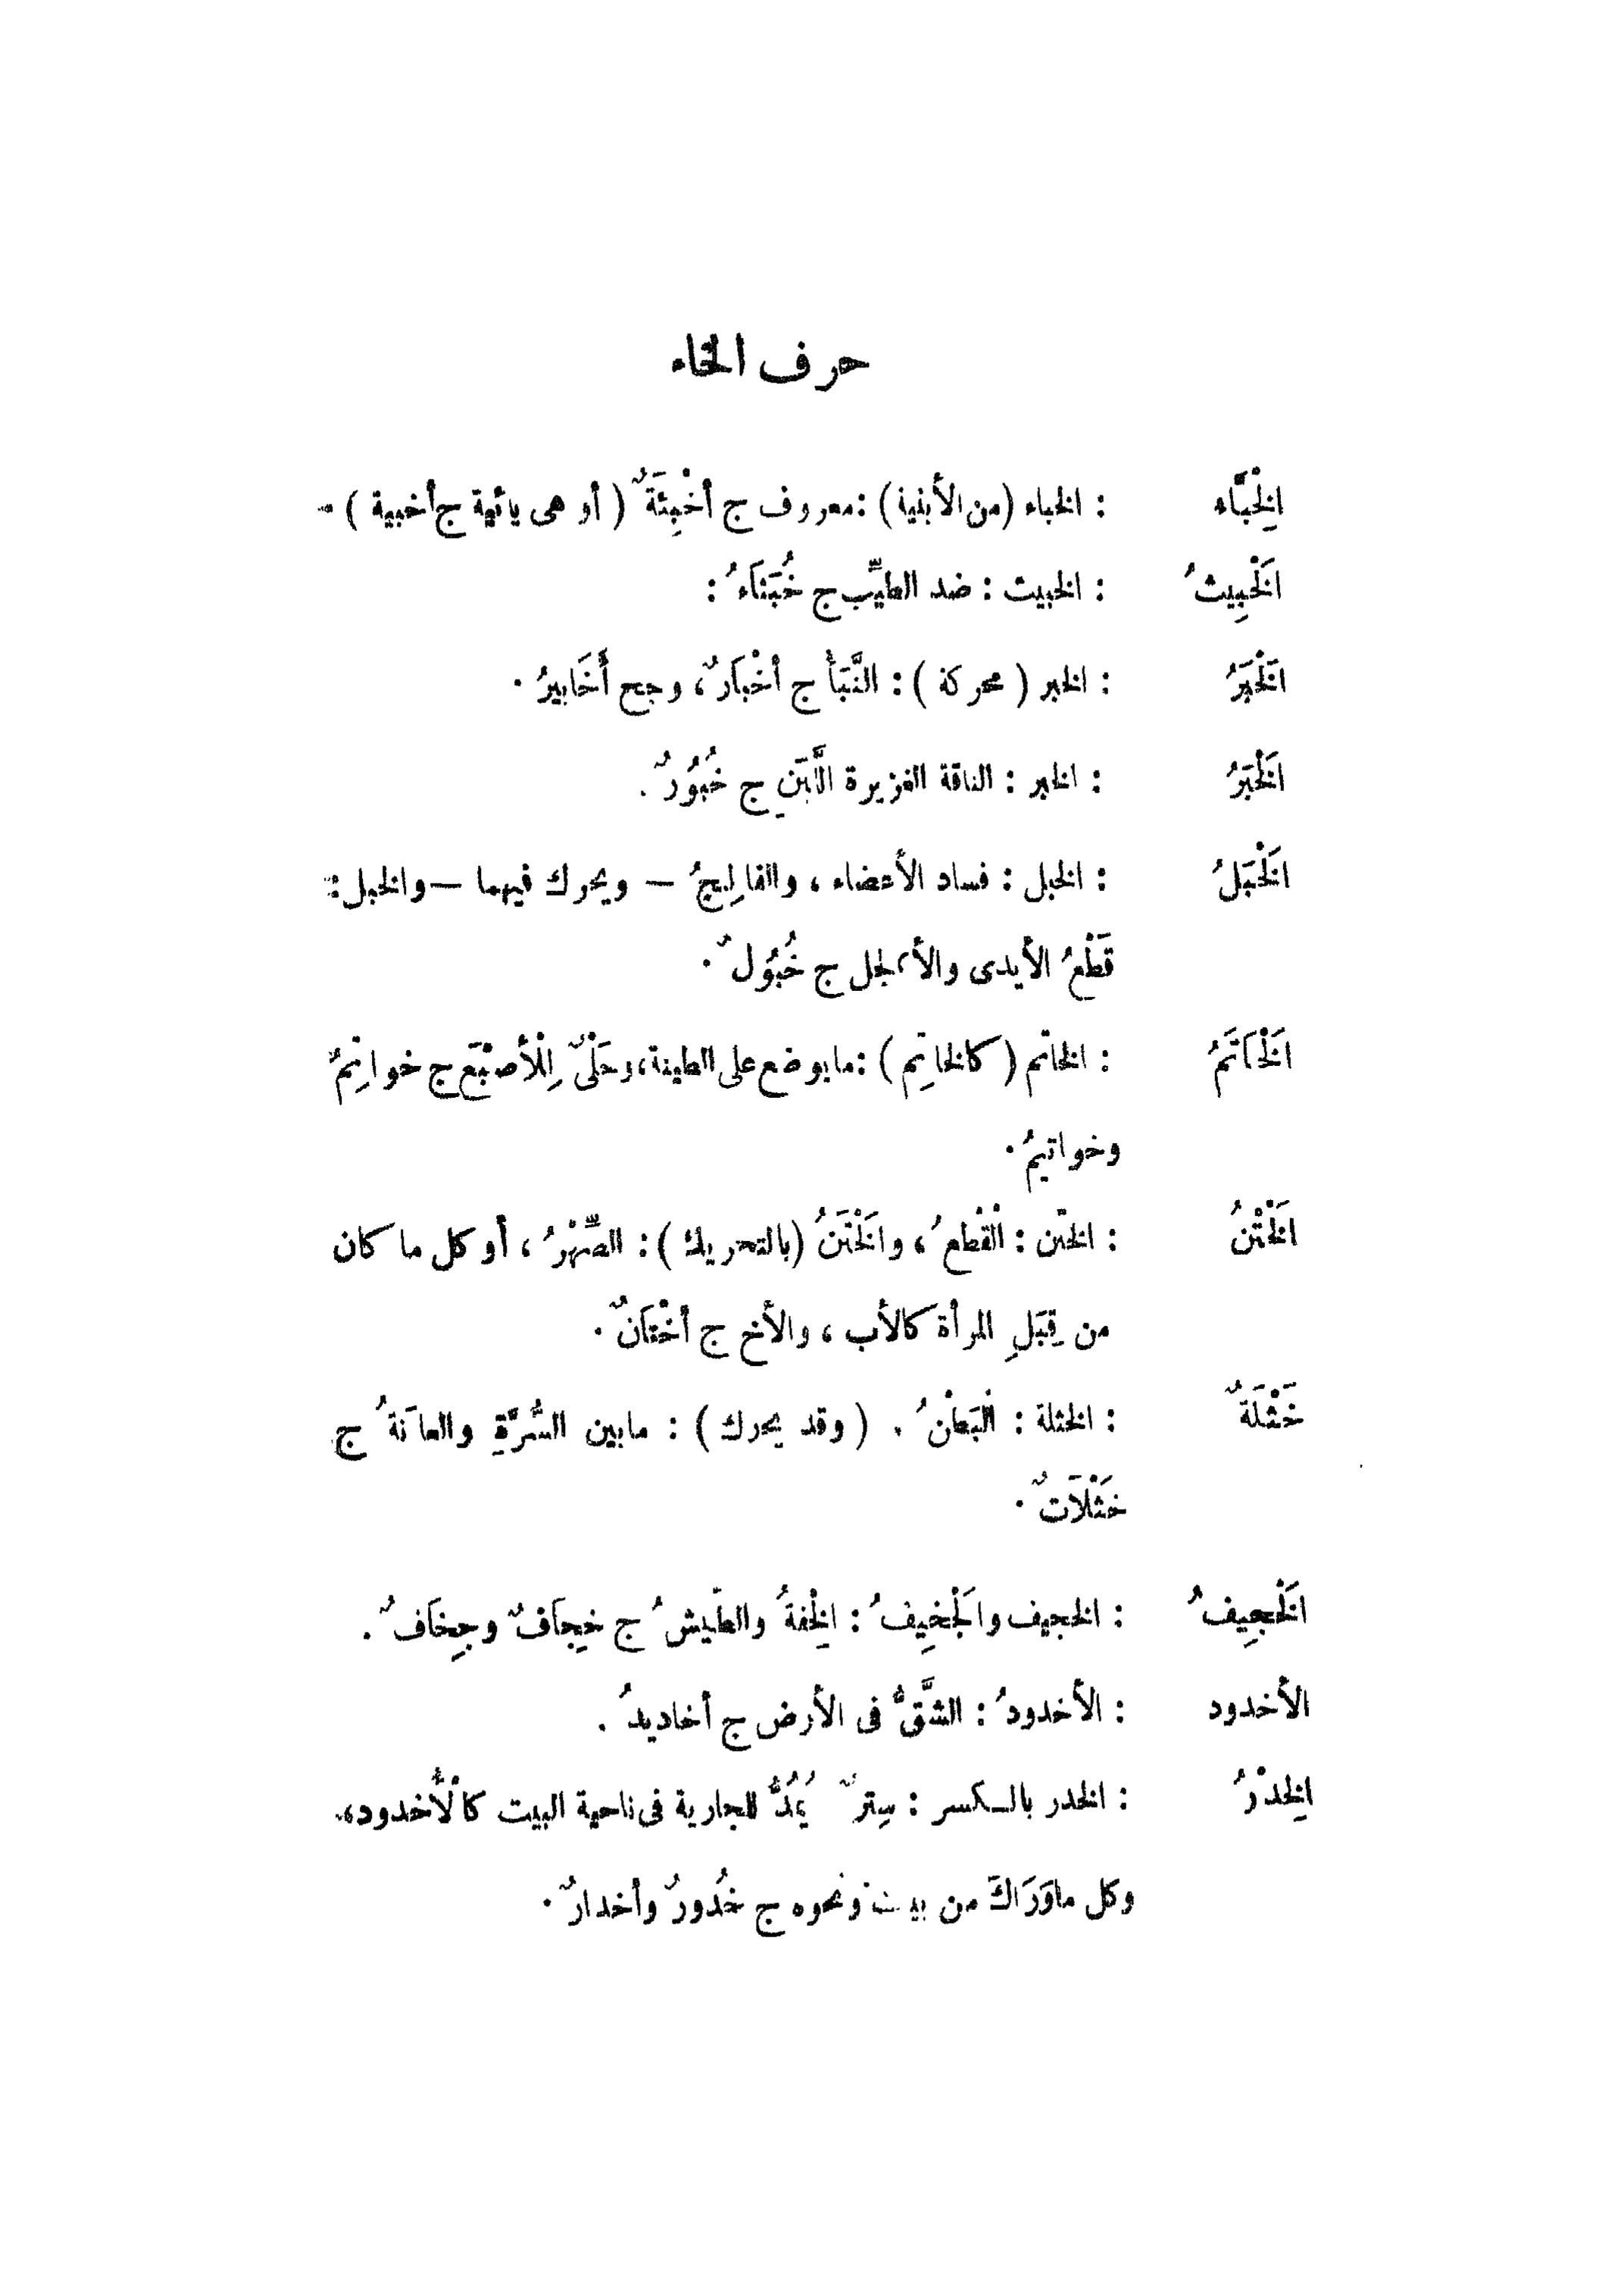 حرف الخاء
الْخِبَاء : الخباء (من الأبنية) : معروف ج أخْبِئَةٌ (أو هى يائية ج أخبية)
الْخَبِيثُ : الخبيث : ضد الطيِّب ج خُبَثَاءُ :
الْخَبَرُ : الخبر (محركة) : النَّبَأ ج أخْبَارٌ، وجج أَخَابيرُ .
الْخَبَرُ : الخبر : الناقة الغزيرة الَّلبَنِ ج خُبُوُرٌ .
الْخَبَلُ : الخبل : فساد الأعضاء ، والفالِجُ – ويحرك فيهما – والخبل :
قَطْعُ الأيدى والأرجل ج خُبُوُلٌ .
الْخَاتَمُ : الخاتم (كالخاتِم) : مايوضع على الطينة، وحَلْىٌ لِلْأصْبَع ج خواتِمُ
وخواتيمُ .
الْخَتْنُ : الختن : الْقَطْعُ ، والْخَتَنُ (بالتحريك) : الصِّهْرُ ، أو كل ما كان
من قِبَلِ المرأة كالأب ، والأخ ج أخْتَانٌ .
خَثْلَةٌ : الخثلة : الْبَطْنُ . (وقد يحرك) : مابين السُّرَّةِ والعَانةُ ج
خَثْلَاتٌ .
الْخَجِيفُ : الخجيف والْجَخِيفُ : الخِفةُ والطَيشُ ج خِجَافٌ وجِخَافٌ .
الأخدود : الأخدودُ : الشَّقُّ فى الأرض ج أخاديدُ .
الخِدْرُ : الخدر بالكسر : سِترٌ يُمَدُّ للجارية فى ناحية البيت كالْأُخدود،
وكل ماوَرَاكَ من بيت ونحوه ج خُدورٌ وأخدارٌ .